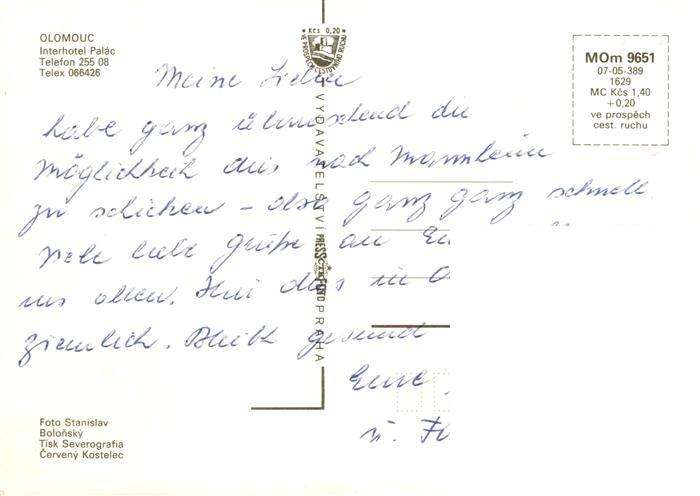 OLOMOUC
Interhotel Palác
Telefon 255 08
Telex 066426
Kčs 0,20
VE PROSPĚCH CESTOVNÍHO RUCHU
MOm 9651
07-05-389
1629
MC Kčs 1,40
+0,20
ve prospěch
cest. ruchu
Meine Lieben
habe ganz überraschend die
Möglichkeit dies nach Mannheim
zu schicken – also ganz ganz schnell
viele liebe Grüße an
uns allen. dies in
ziemlich. Bleibt gesund
Eure
u.
VYDAVATELSTVÍ PRESSFOTO PRAHA
ČTK
Foto Stanislav
Boloňský
Tisk Severografia
Červený Kostelec